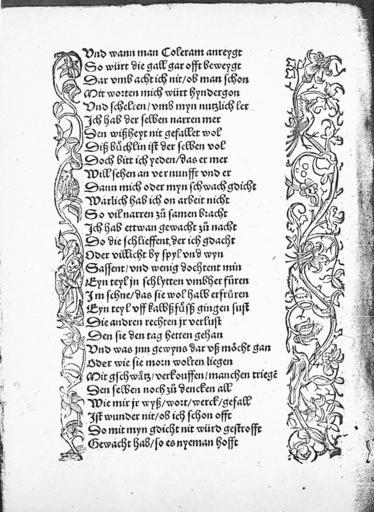 Vnd wann man Coleram anreygt
So würt die gall gar offt beweygt
Dar vmb acht ich nit / ob man schon
Mit worten mich würt hyndergon
Vnd schelten / vmb myn nutzlich ler
Ich hab der selben narren mer
Den wißheyt nit gefallet wol
Diß büchlin ist der selben vol
Doch bitt ich yeden / das er mer
Will sehen an vernunfft vnd er
Dann mich oder myn schwach gdicht
Warlich hab ich on arbeit nicht
So vil narren zů samen bracht
Ich hab ettwan gewacht zů nacht
Do die schlieffent, der ich gdacht
Oder villicht by spyl vnd wyn
Sassent / vnd wenig dochtent min
Eyn teyl jn schlytten vmbher fůren
Im schne / das sie wol halb erfrüren
Eyn teyl vff kalbßfůß gingen sust
Die andren rechten jr verlust
Den sie den tag hetten gehan
Vnd was jnn gewyns dar vß möcht gan
Oder wie sie morn wolten liegen
Mit gschwätz / verkouffen / manchen triegē
Den selben noch zů dencken all
Wie mir jr wyß / wort / werck / gefall
Ist wunder nit / ob ich schon offt
Do mit myn gdicht nit würd gestrofft
Gewacht hab / so es nyeman hofft